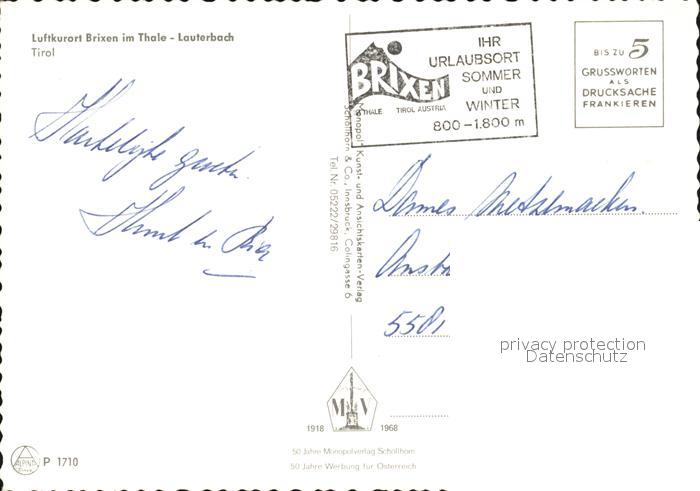 Luftkurort Brixen im Thale - Lauterbach
Tirol
IHR
URLAUBSORT
SOMMER
UND
WINTER
800-1.800 m
BRIXEN
THALE TIROL AUSTRIA
BIS ZU 5
GRUSSWORTEN
ALS
DRUCKSACHE
FRANKIEREN
Hartelijke groeten
Dames
5581
Monopol Kunst- und Ansichtskarten-Verlag
Schöllhorn & Co., Innsbruck, Colingasse 6
Tel. Nr. 05222/29816
privacy protection
Datenschutz
M V
1918 1968
50 Jahre Monopolverlag Schöllhorn
50 Jahre Werbung für Österreich
ALPINA
P 1710